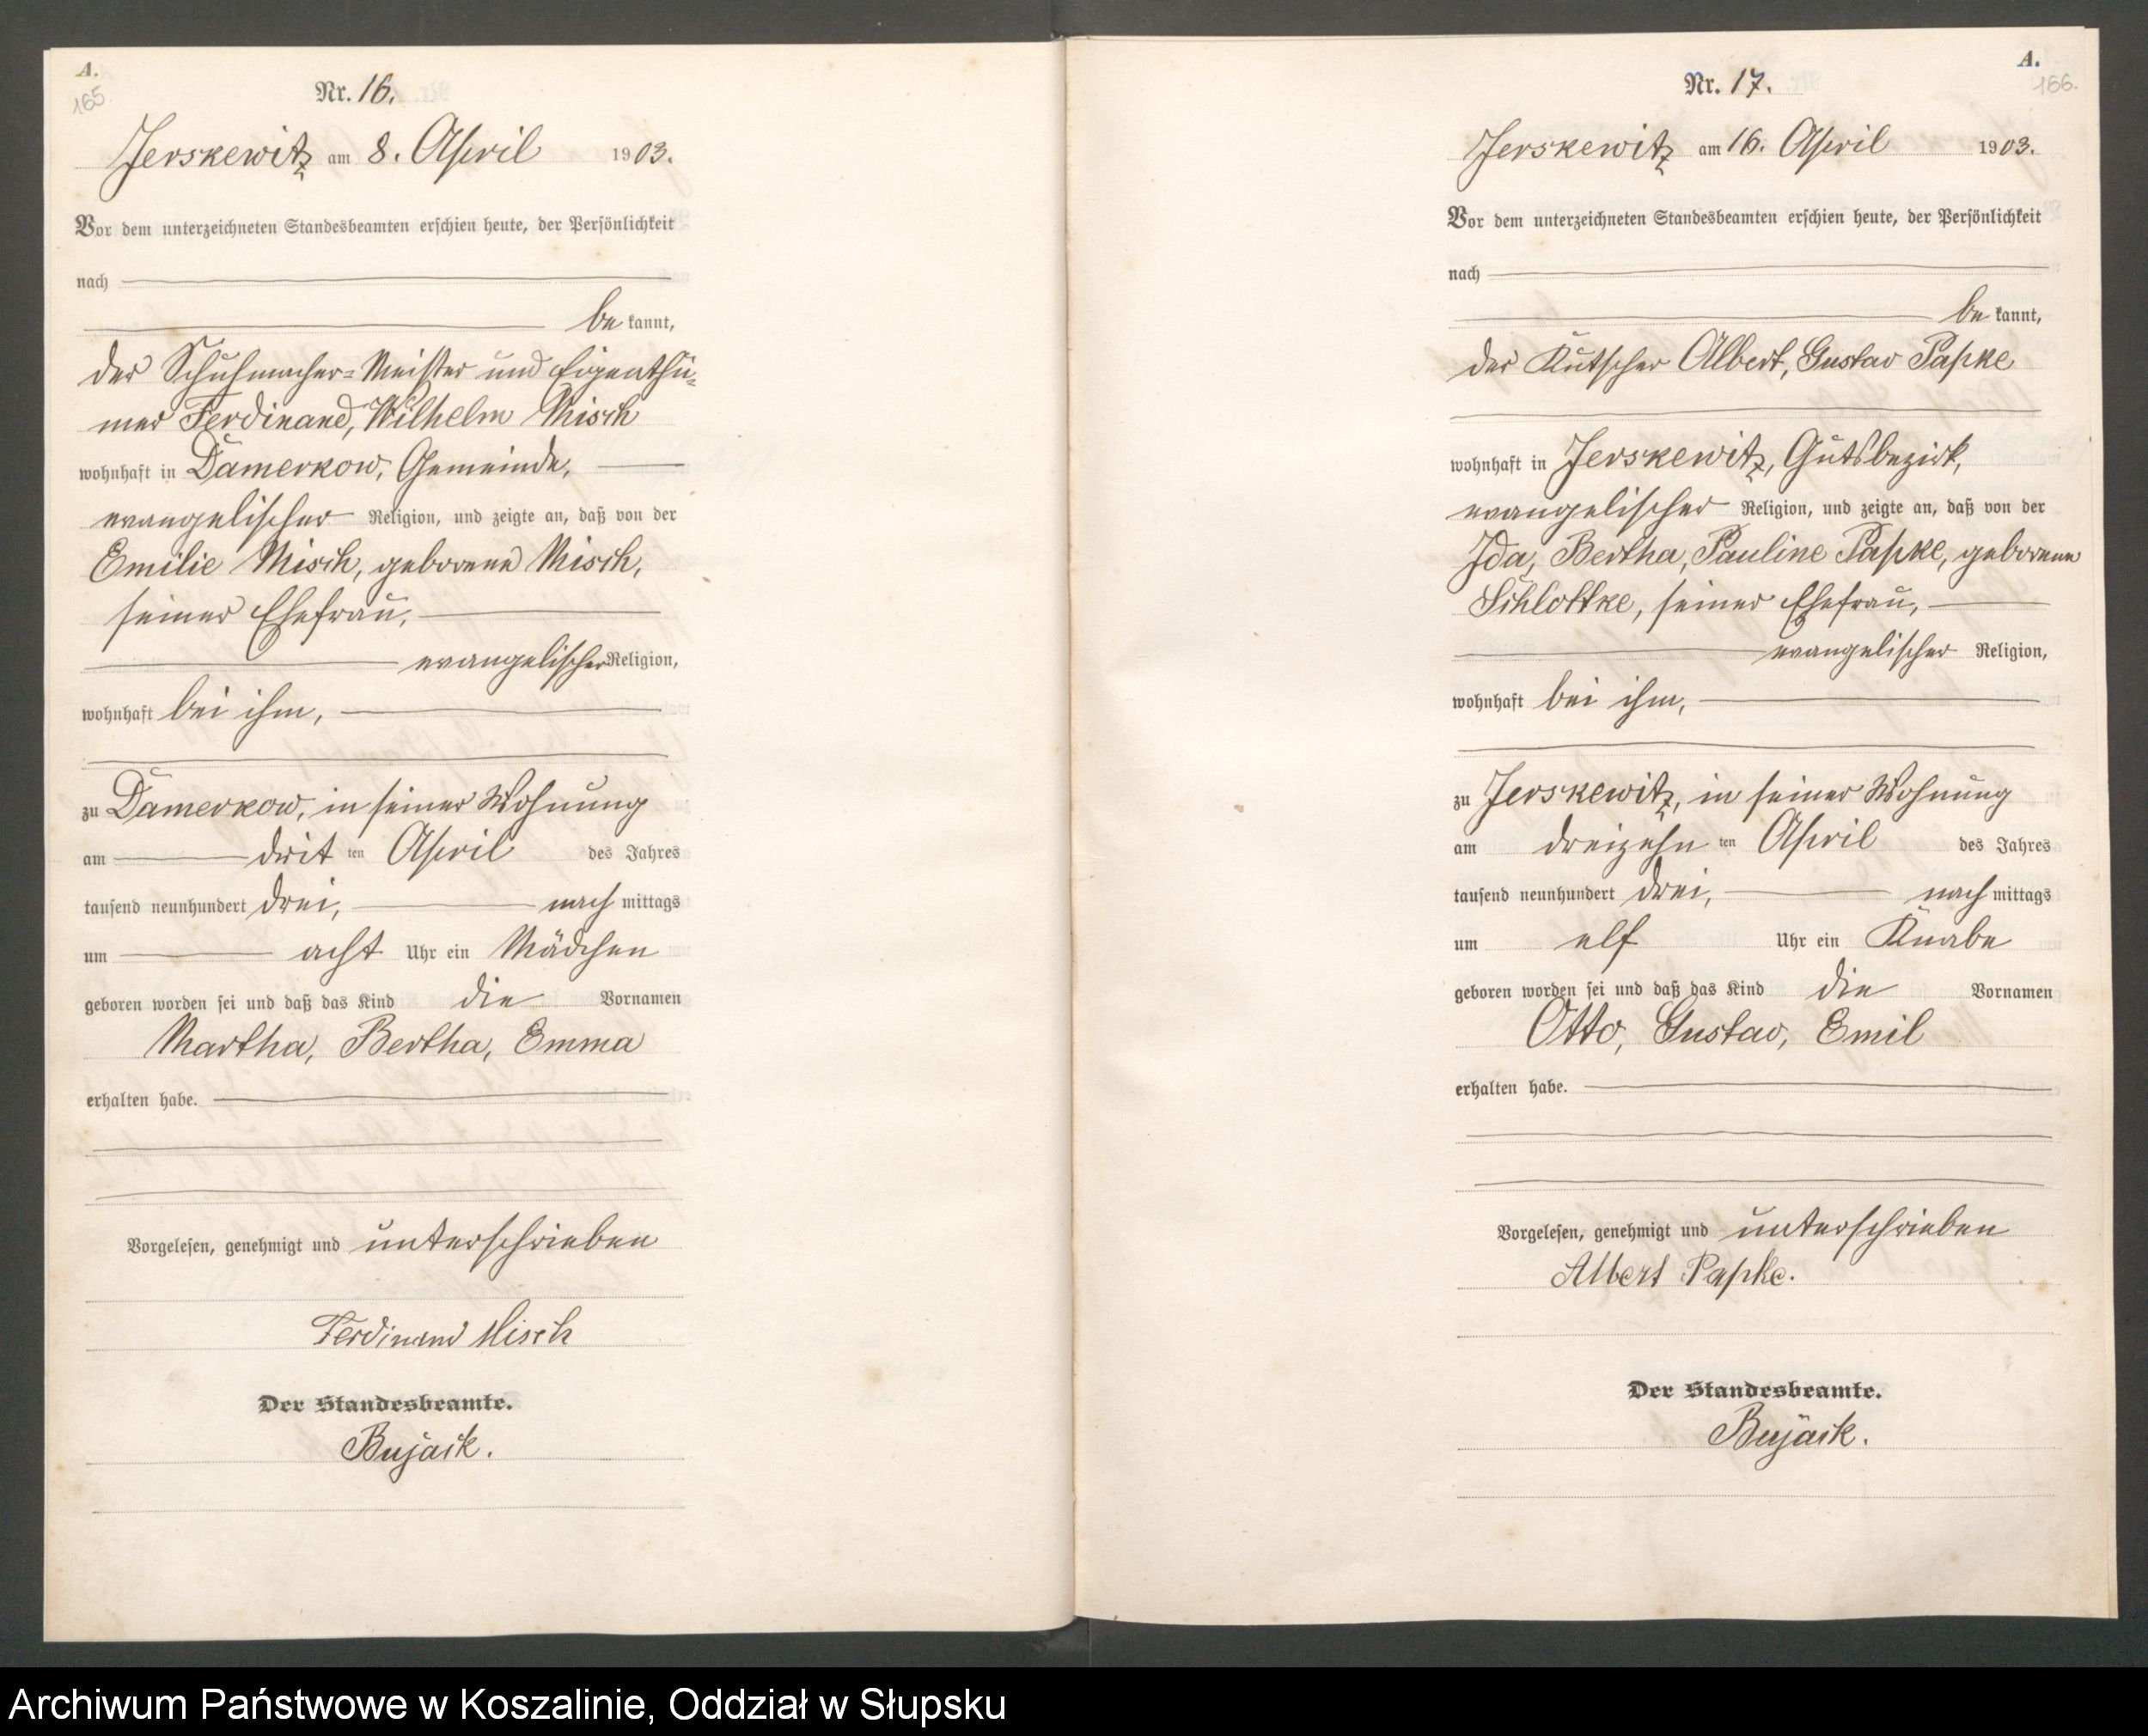 A.
165
Nr. 16.
Jerskewitz am 8. April 1903.
Vor dem unterzeichneten Standesbeamten erschien heute, der Persönlichkeit
nach
be kannt,
der Schuhmacher-Meister und Eigenthü-
mer Ferdinand, Wilhelm Misch
wohnhaft in Damerkow, Gemeinde,
evangelischer Religion, und zeigte an, daß von der
Emilie Misch, geborene Misch,
seiner Ehefrau,
evangelischer Religion,
wohnhaft bei ihm,
zu Damerkow, in seiner Wohnung
am drit ten April des Jahres
tausend neunhundert drei, nach mittags
um acht Uhr ein Mädchen
geboren worden sei und daß das Kind die Vornamen
Martha, Bertha, Emma
erhalten habe.
Vorgelesen, genehmigt und unterschrieben
Ferdinand Misch
Der Standesbeamte.
Bujack.
A.
166.
Nr. 17.
Jerskewitz am 16. April 1903.
Vor dem unterzeichneten Standesbeamten erschien heute, der Persönlichkeit
nach
be kannt,
der Kutscher Albert, Gustav Papke
wohnhaft in Jerskewitz, Gutsbezirk,
evangelischer Religion, und zeigte an, daß von der
Ida, Bertha, Pauline Papke, geborene
Schlottke, seiner Ehefrau,
evangelischer Religion,
wohnhaft bei ihm,
zu Jerskewitz, in seiner Wohnung
am dreizehn ten April des Jahres
tausend neunhundert drei, nach mittags
um elf Uhr ein Knabe
geboren worden sei und daß das Kind die Vornamen
Otto, Gustav, Emil
erhalten habe.
Vorgelesen, genehmigt und unterschrieben
Albert Papke.
Der Standesbeamte.
Bujack.
Archiwum Państwowe w Koszalinie, Oddział w Słupsku